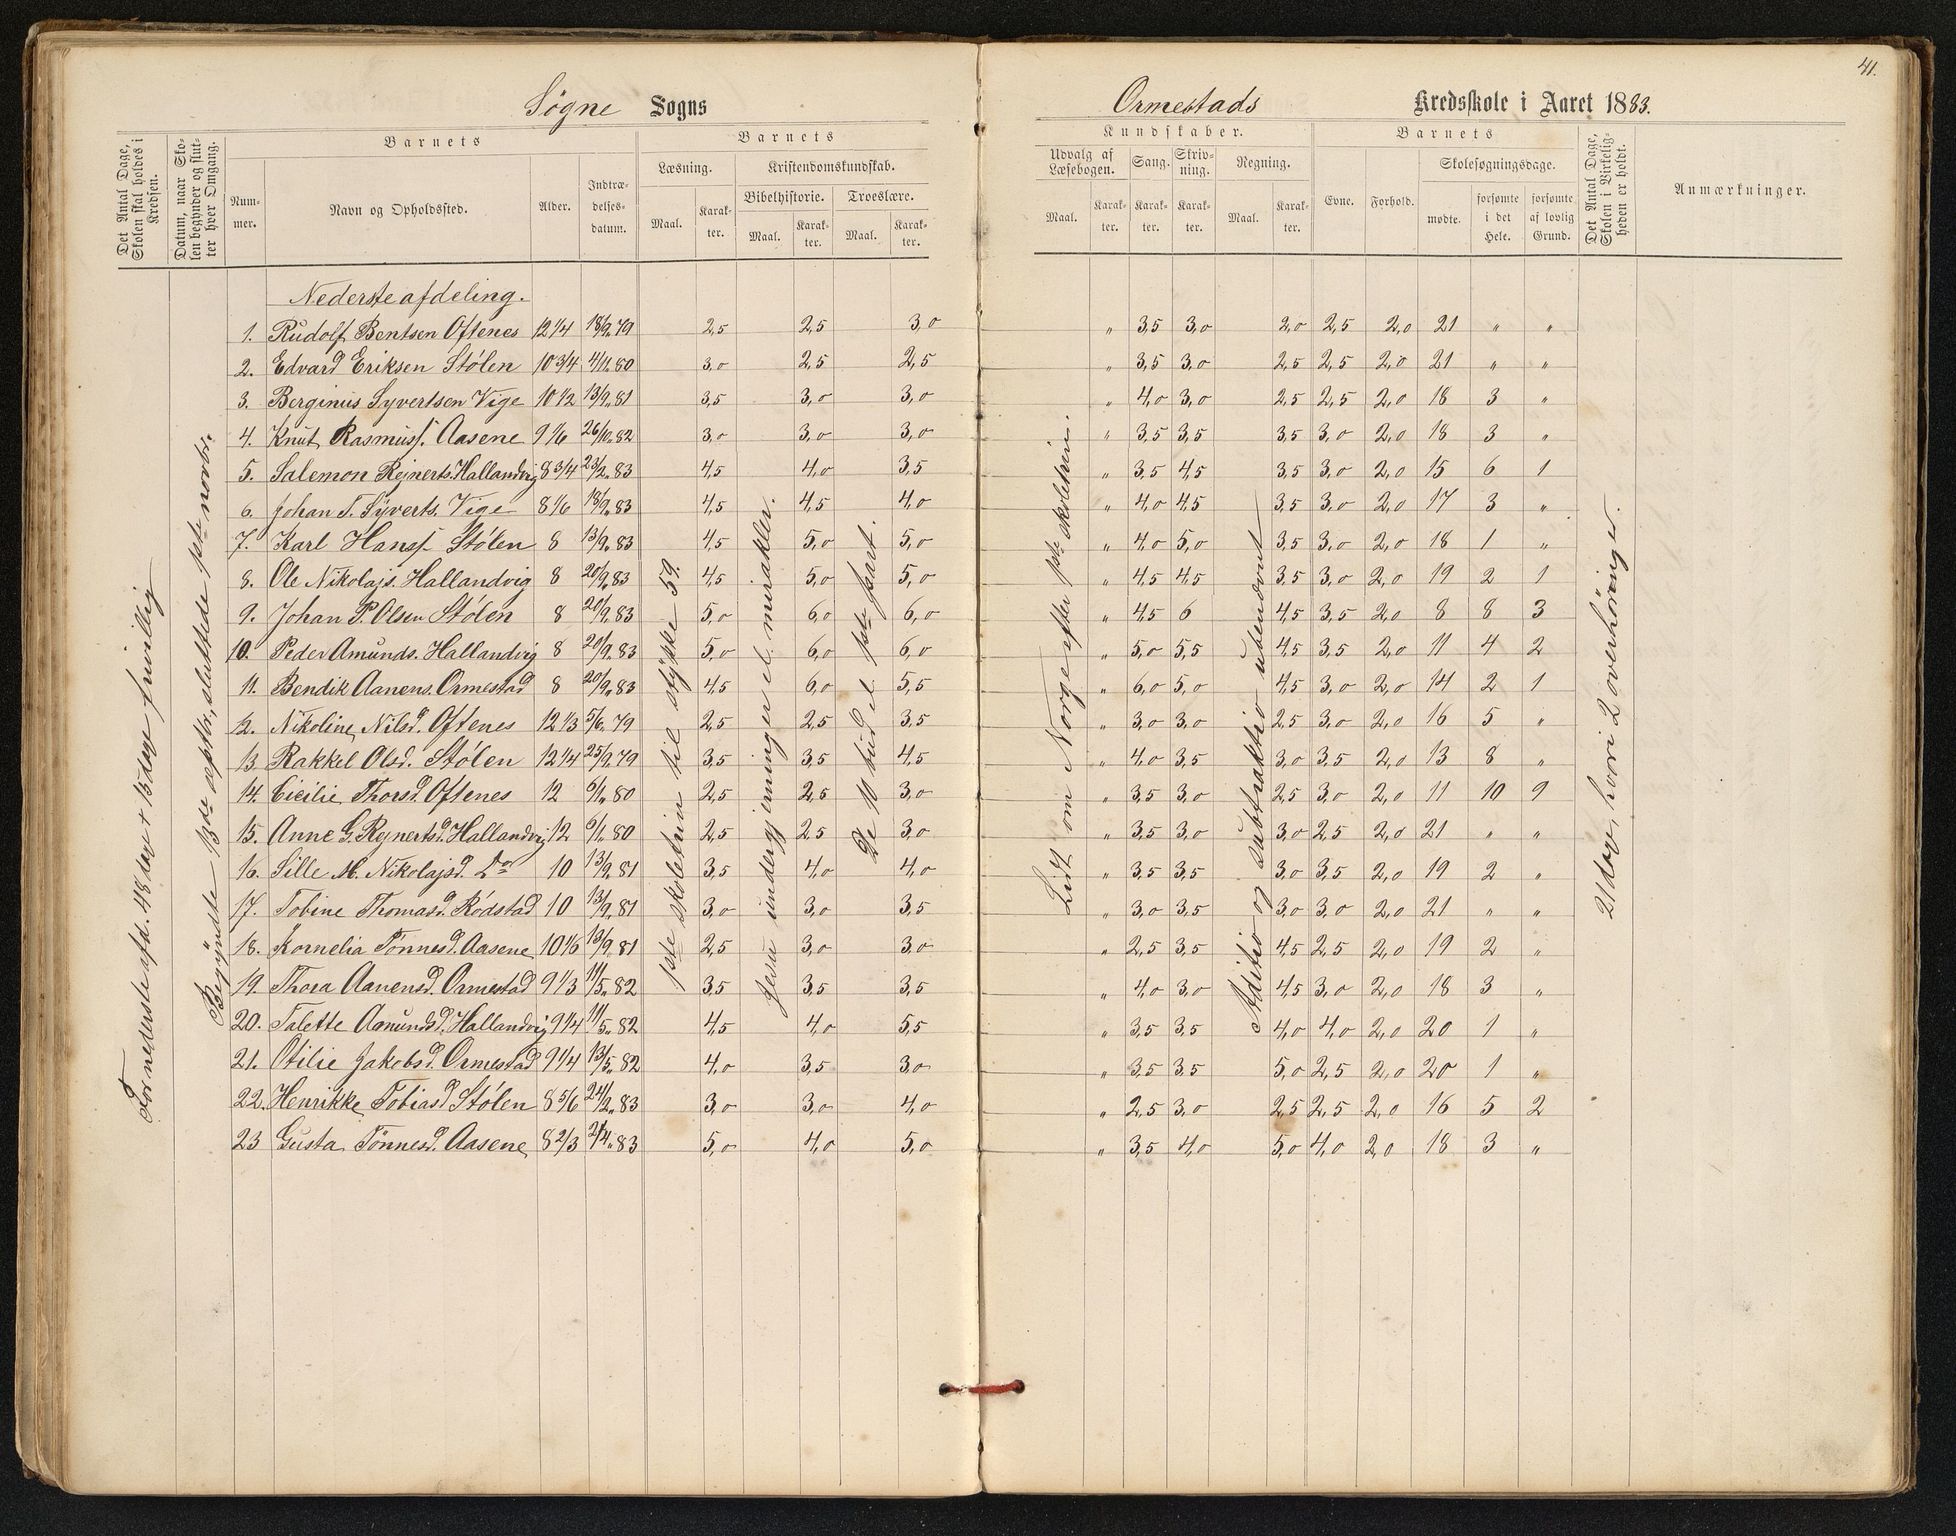 41.
Søgne Sogns Ormestads Kredsskole i Aaret 1883.
Det Antal Dage, Skolen skal holdes i Kredsen.
Datum, naar Skolen begynder og slutter hver Omgang.
Barnets
Nummer.
Navn og Opholdssted.
Alder.
Indtrædelsesdatum.
Barnets
Læsning.
Maal. Karakter.
Kristendomskundskab.
Bibelhistorie. Troeslære.
Maal. Karakter. Maal. Karakter.
Kundskaber.
Udvalg af Læsebogen. Sang. Skrivning. Regning.
Maal. Karakter. Karakter. Karakter. Maal. Karakter.
Barnets
Evne. Forhold. Skolesøgningsdage.
mødte. forsømte i det Hele. forsømte af lovlig Grund.
Det Antal Dage, Skolen i Virkeligheden er holdt.
Anmærkninger.
For nederste afd. 48 dage + 15 dage frivillig
Begyndte 13de septbr., sluttede 1ste novbr.
1ste skoletrin til stykke 59.
Jesu undergjerninger el. mirakler.
De 10 bud el. 1ste part.
Lidt om Norge efter 1ste skoletrin.
Aditio og subtraktio ubenævnt
21 dage, hvori 2 overhøringer.
Nederste afdeling.
1. Rudolf Bentsen Oftenes 12 1/4 18/9. 79 2,5 2,5 3,0 „ 3,5 3,0 2,0 2,5 2,0 21 „ „
2. Edvard Eriksen Stølen 10 3/4 4/11. 80 3,0 2,5 2,5 „ 3,5 3,0 2,5 2,5 2,0 21 „ „
3. Berginius Syvertsen Vige 10 1/2 13/9. 81 3,5 3,0 3,0 „ 4,0 3,0 2,5 2,5 2,0 18 3 „
4. Knut Rasmuss. Aasene 9 1/6 26/10. 82 3,0 3,0 3,0 „ 3,5 3,5 3,5 3,0 2,0 18 3 „
5. Salemon Rejnerts. Hallandvig 8 3/4 23/2. 83 4,5 4,0 3,5 „ 3,5 4,5 3,5 3,0 2,0 15 6 1
6. Johan T. Syverts. Vige 8 1/6 18/9. 83 4,5 4,5 4,0 „ 4,0 4,5 3,5 3,0 2,0 17 3 „
7. Karl Hanss. Stølen 8 13/9. 83 4,5 5,0 5,0 „ 4,0 5,0 3,5 3,0 2,0 18 1 „
8. Ole Nikolajs. Hallandvig 8 20/9. 83 4,5 5,0 5,0 „ 4,5 4,5 3,5 3,0 2,0 19 2 1
9. Johan P. Olsen Stølen 8 20/9. 83 5,0 6,0 6,0 „ 4,5 6 4,5 3,5 2,0 8 8 3
10. Peder Amunds. Hallandvig 8 20/9. 83 5,0 6,0 6,0 „ 5,0 5,5 4,5 3,5 2,0 11 4 2
11. Bendik Aanens. Ormestad 8 20/9. 83 4,5 6,0 5,5 „ 6,0 5,0 4,5 3,0 2,0 14 2 1
12. Nikoline Nilsd. Oftenes 12 1/3 5/6. 79 2,5 2,5 3,5 „ 3,0 3,0 2,5 3,0 2,0 16 5 „
13. Rakkel Olsd. Stølen 12 1/4 25/9. 79 3,5 3,5 4,5 „ 4,0 3,5 3,0 3,5 2,0 13 8 „
14. Cicilie Thorsd. Oftenes 12 6/11. 80 2,5 2,5 3,0 „ 3,5 3,0 2,5 3,0 2,0 11 10 9
15. Anne G. Rejnertsd. Hallandvig 12 6/11. 80 2,5 2,5 3,0 „ 3,5 3,0 3,0 2,5 2,0 21 „ „
16. Sille M. Nikolajsd. Do 10 13/9. 81 3,5 4,0 4,0 „ 3,5 3,5 3,0 3,5 2,0 19 2 „
17. Tobine Thomasd. Rødstad 10 13/9. 81 3,0 3,0 3,5 „ 3,0 3,5 3,0 3,0 2,0 21 „ „
18. Kornelia Tønnesd. Aasene 10 1/6 13/9. 81 2,5 3,0 3,0 „ 2,5 3,5 4,5 2,5 2,0 19 2 „
19. Thora Aanensd. Ormestad 9 1/3 11/5. 82 3,5 3,5 3,5 „ 4,0 3,0 4,5 3,0 2,0 18 3 „
20. Talette Amundsd. Hallandvig 9 1/4 11/5. 82 4,5 4,0 5,5 „ 3,5 3,5 4,0 4,0 2,0 20 1 „
21. Otilie Jakobsd. Ormestad 9 1/4 13/5. 82 4,0 3,5 3,0 „ 3,5 3,5 5,0 2,5 2,0 20 1 „
22. Henrikke Tobiasd. Stølen 8 5/6 24/2. 83 3,0 3,0 4,0 „ 2,5 3,0 2,5 2,5 2,0 16 5 2
23 Gusta Tønnesd. Aasene 8 2/3 2/4. 83 5,0 4,0 5,0 „ 3,5 4,0 5,0 4,0 2,0 18 3 „